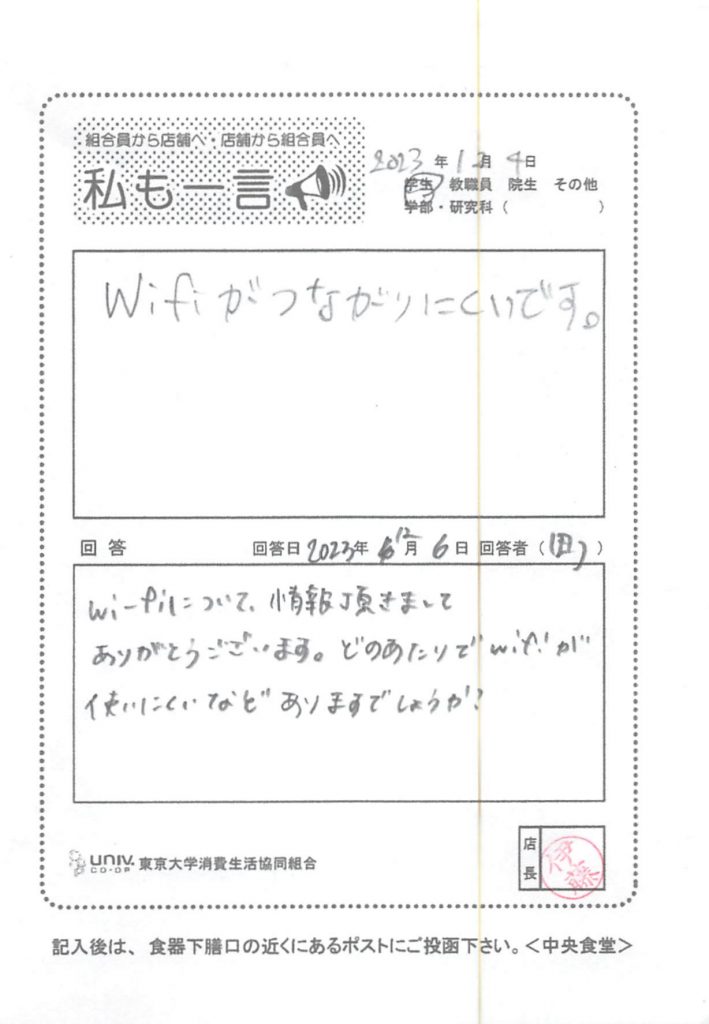 組合員から店舗へ・店舗から組合員へ
私も一言
2023年12月4日
学生 教職員 院生 その他
学部・研究科（ ）
Wifiがつながりにくいです。
回答 回答日 2023年 12月 6日 回答者（ ）
wi-fiについて、情報頂きまして
ありがとうございます。どのあたりでwifiが
使いにくいなどありますでしょうか?
UNIV. CO-OP 東京大学消費生活協同組合
店長 伊藤
記入後は、食器下膳口の近くにあるポストにご投函下さい。＜中央食堂＞